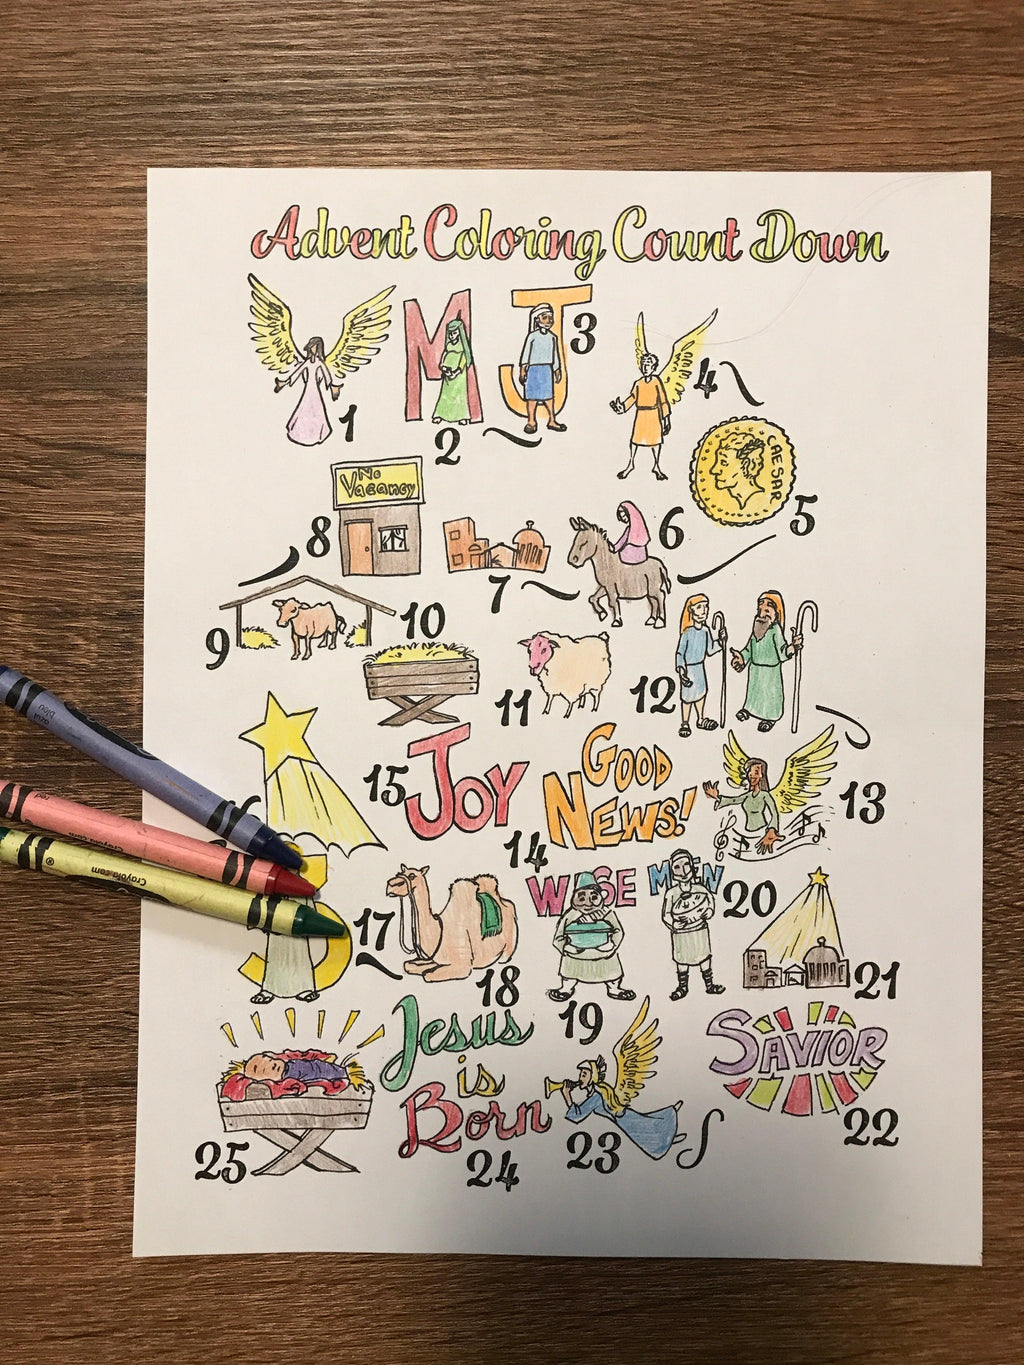 Advent Coloring Count Down
M
J
1
2
3
4
CAESAR
5
No
Vacancy
8
7
6
9
10
11
12
15
JOY
GOOD
NEWS!
14
13
17
18
WISE MEN
19
20
21
Jesus
is
Born
SAVIOR
22
23
24
25
Crayola.com